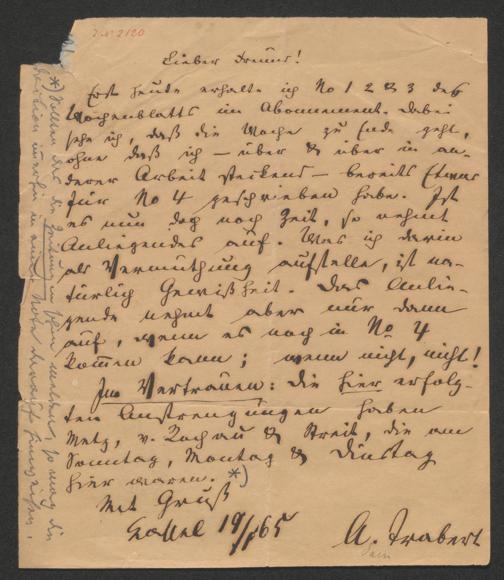 Lieber Freund!
Erst heute erhalte ich No 1 2 & 3 des
Wochenblatts im Abonnement. Dabei
sehe ich, daß die Woche zu Ende geht,
ohne daß ich – über & über in an-
derer Arbeit steckend – bereits Etwas
für No 4 geschrieben habe. Ist
es nun doch noch Zeit, so nehmt
Anliegendes auf. Was ich darin
als Vermuthung aufstelle, ist na-
türlich Gewißheit. Das Anlie-
gende nehmt aber nur dann
auf, wenn es noch in No 4
kommen kann; wenn nicht, nicht!
Im Vertrauen: die hier erfolg-
ten Anstrengungen haben
Metz, v. Rochau & Streit, die am
Sonntag, Montag & Dinstag
hier waren. *)
Mit Gruß
Cassel 19/1 65
A. Trabert
*) Sollten das die Zeitungen schon melden, so mag die
Redaktion in einer Note darauf hinweisen.